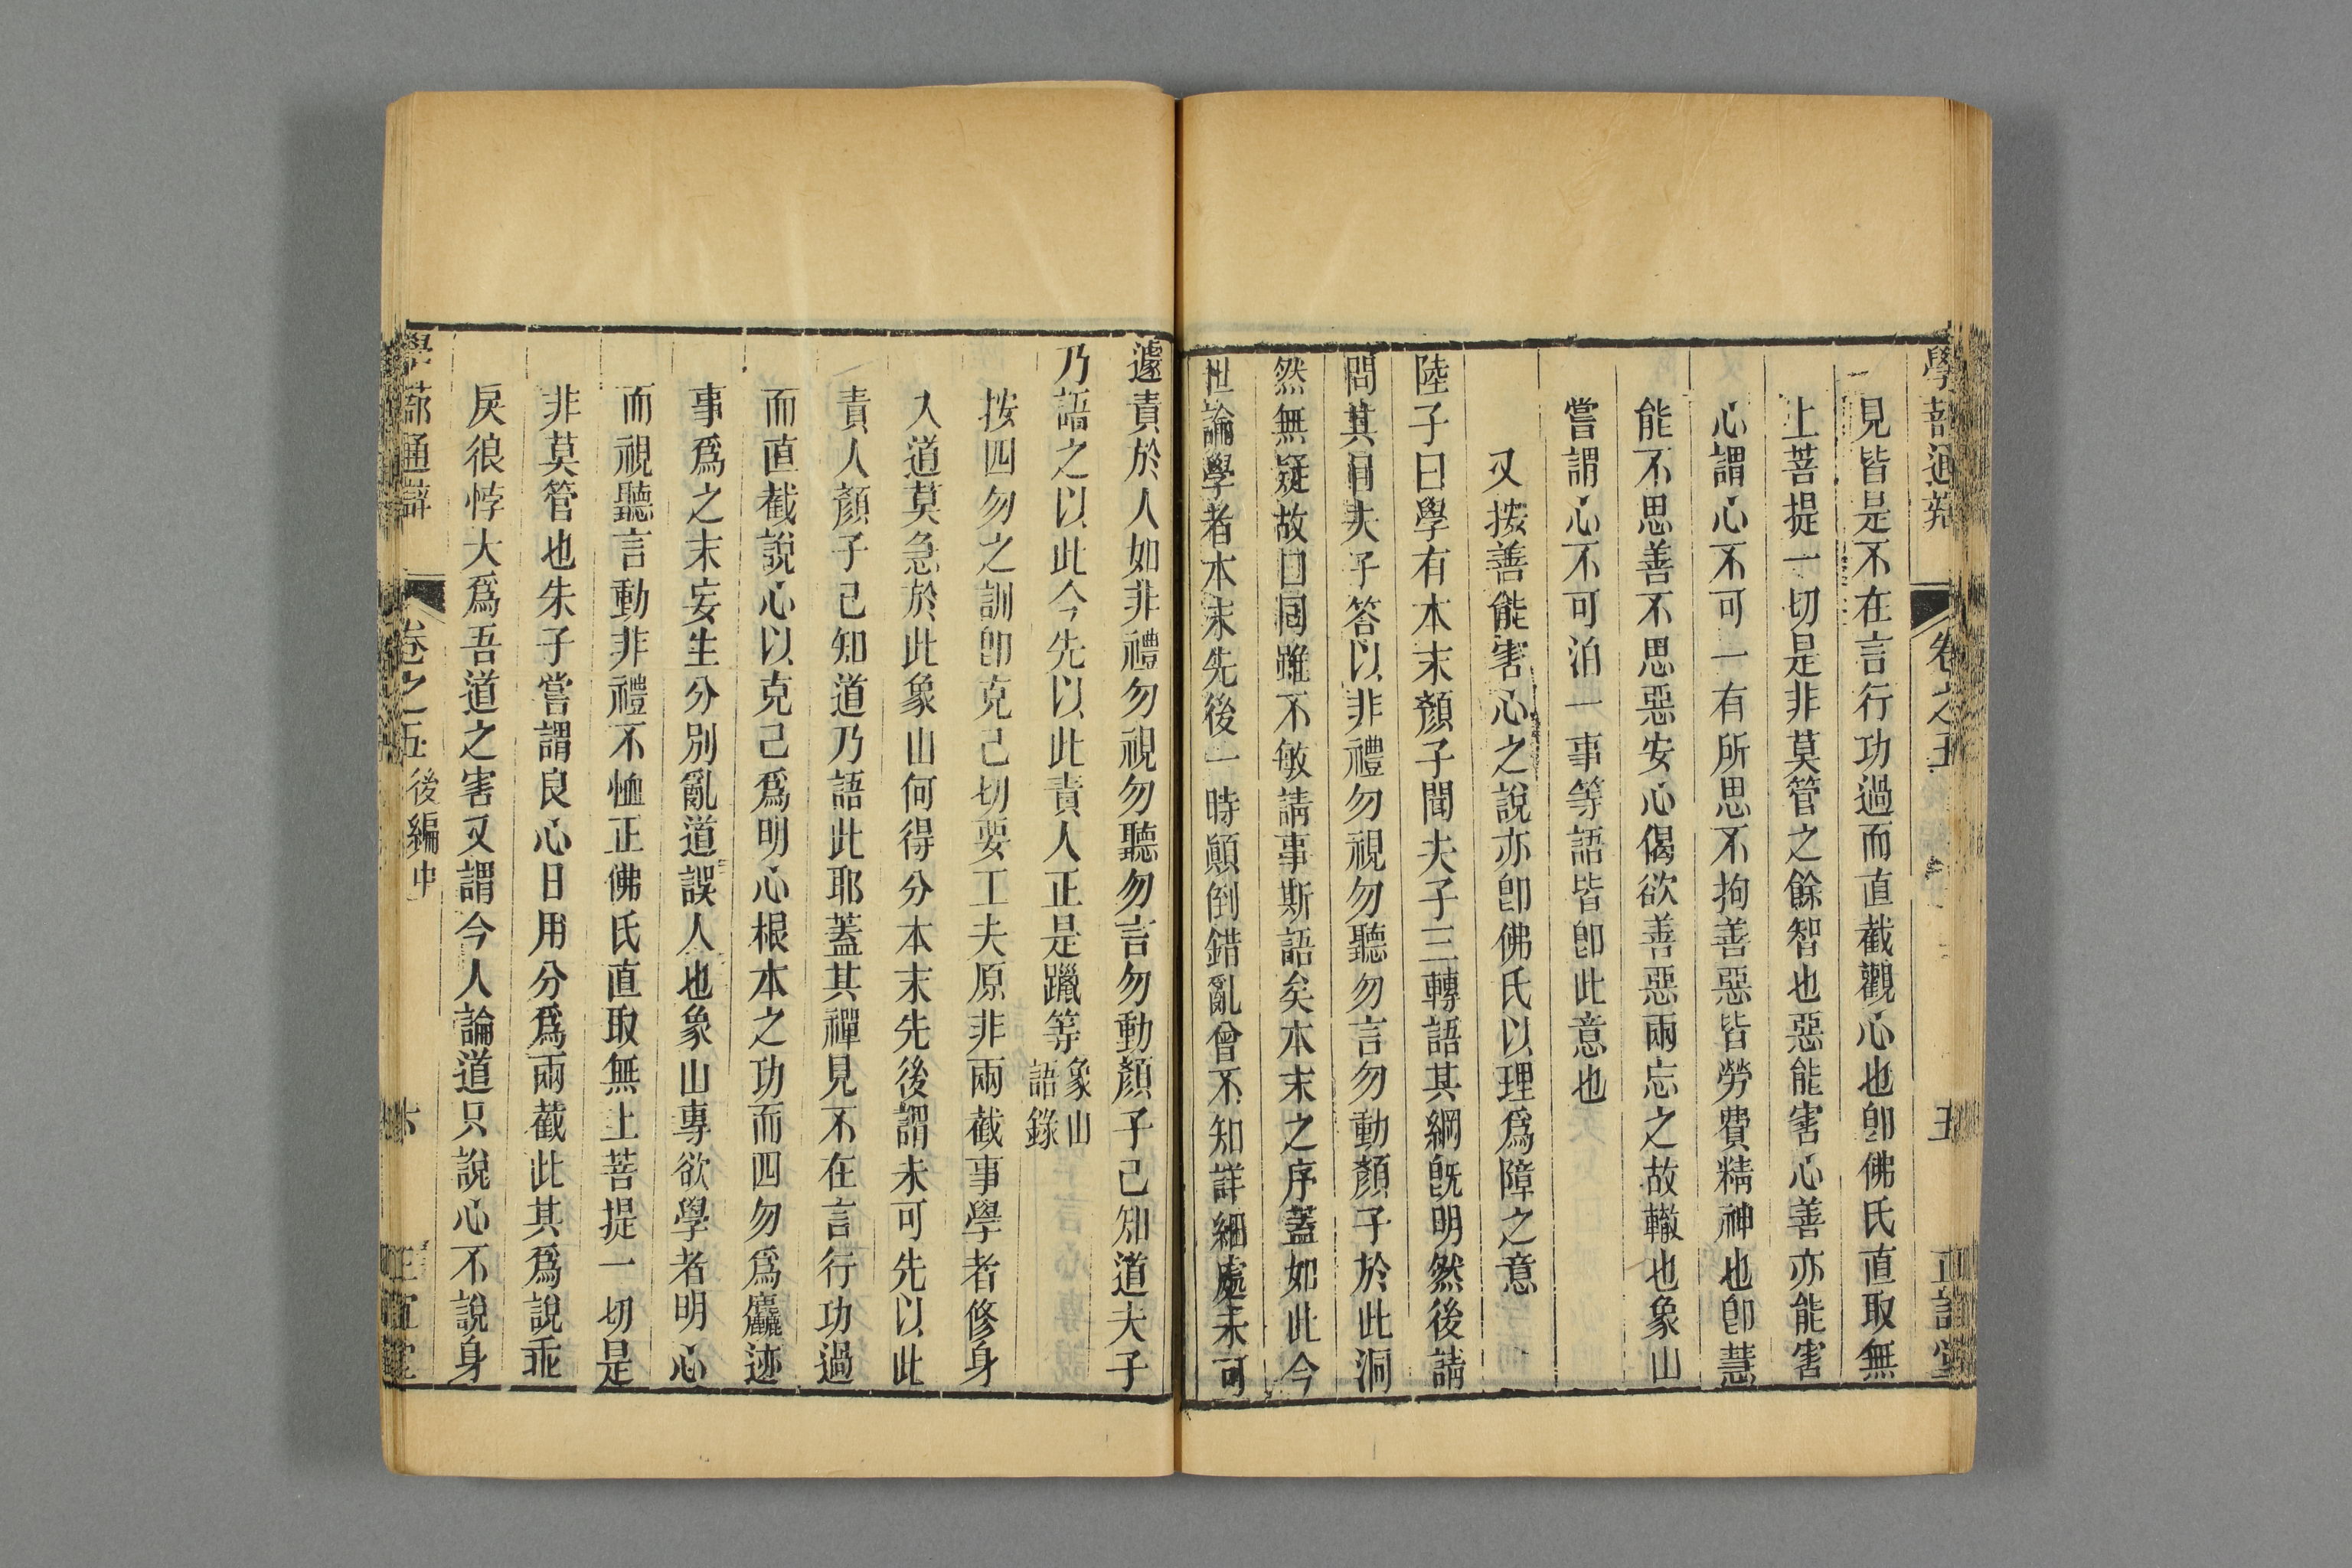 學蔀通辨 卷之五 五 正誼堂
見皆是不在言行功過而直截觀心也卽佛氏直取無
上菩提一切是非莫管之餘智也惡能害心善亦能害
心謂心不可一有所思不拘善惡皆勞費精神也卽慧
能不思善不思惡安心偈欲善惡兩忘之故轍也象山
嘗謂心不可泊一事等語皆卽此意也
又按善能害心之說亦卽佛氏以理爲障之意
陸子曰學有本末顏子聞夫子三轉語其綱旣明然後請
問其目夫子答以非禮勿視勿聽勿言勿動顏子於此洞
然無疑故曰囘雖不敏請事斯語矣本末之序蓋如此今
世論學者本末先後一時顚倒錯亂曾不知詳細處未可
遽責於人如非禮勿視勿聽勿言勿動顏子已知道夫子
乃語之以此今先以此責人正是躐等象山語錄
按四勿之訓卽克己切要工夫原非兩截事學者修身
入道莫急於此象山何得分本末先後謂未可先以此
責人顏子已知道乃語此耶蓋其禪見不在言行功過
而直截說心以克己爲明心根本之功而四勿爲麤迹
事爲之末妄生分別亂道誤人也象山專欲學者明心
而視聽言動非禮不恤正佛氏直取無上菩提一切是
非莫管也朱子嘗謂良心日用分爲兩截此其爲說乖
戾狠悖大爲吾道之害又謂今人論道只說心不說身
學蔀通辯 卷之五 後編中 六 正誼堂